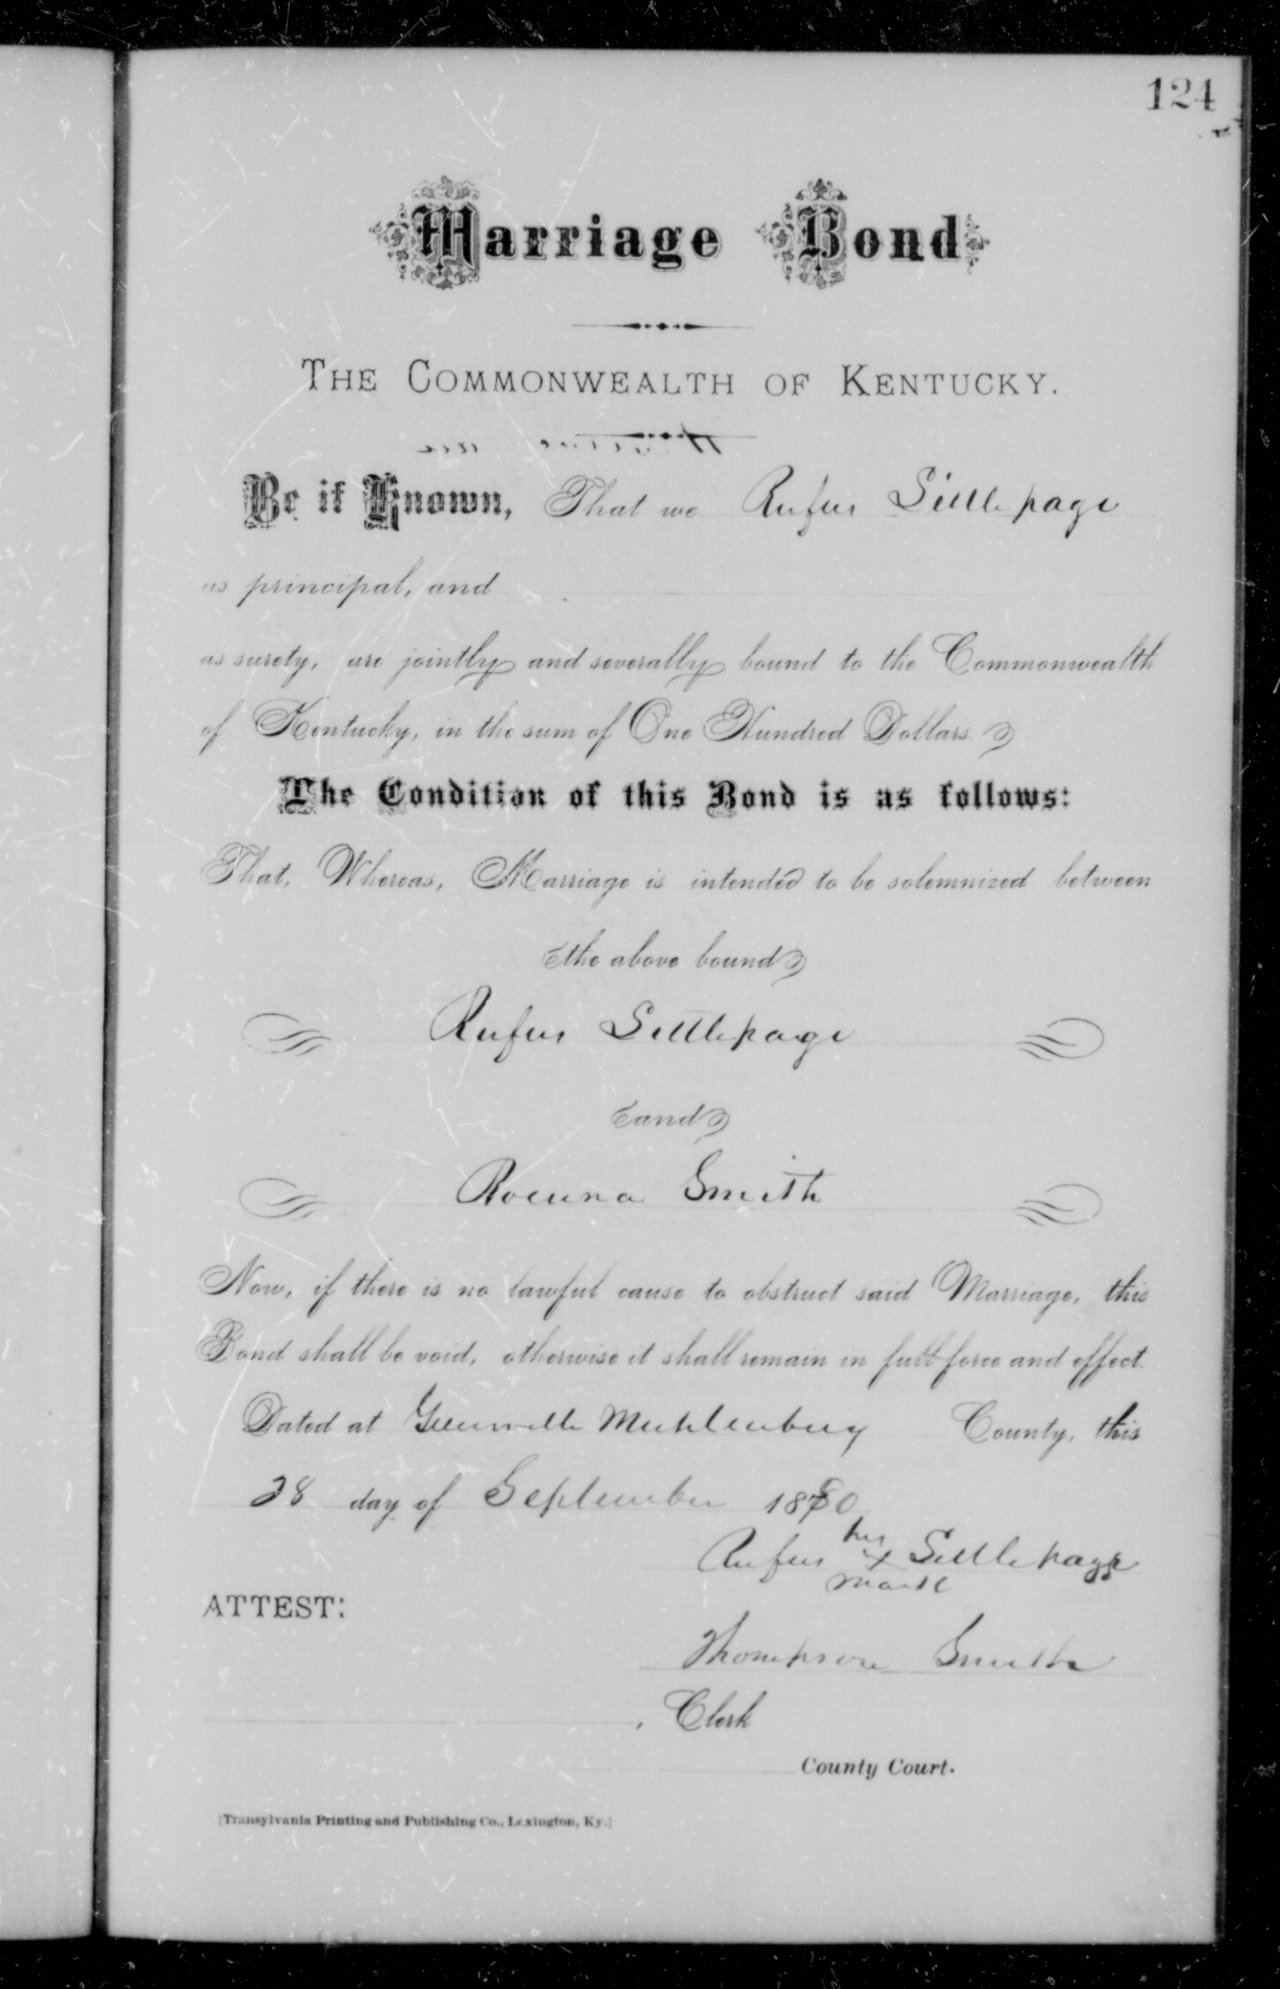 124
Marriage Bond
THE COMMONWEALTH OF KENTUCKY.
Be it Known, That we Rufus Settlepage
as principal, and
as surety, are jointly and severally bound to the Commonwealth
of Kentucky, in the sum of One Hundred Dollars.
The Condition of this Bond is as follows:
That, Whereas, Marriage is intended to be solemnized between
the above bound
Rufus Settlepage
and
Smith
Now, if there is no lawful cause to obstruct said Marriage, this
Bond shall be void, otherwise it shall remain in full force and effect.
Dated at Greenville Muhlenburg County, this
28 day of September 1880
his
Rufus x Settlepage
mark
ATTEST:
Thompson Smith
, Clerk
County Court.
[Transylvania Printing and Publishing Co., Lexington, Ky.]